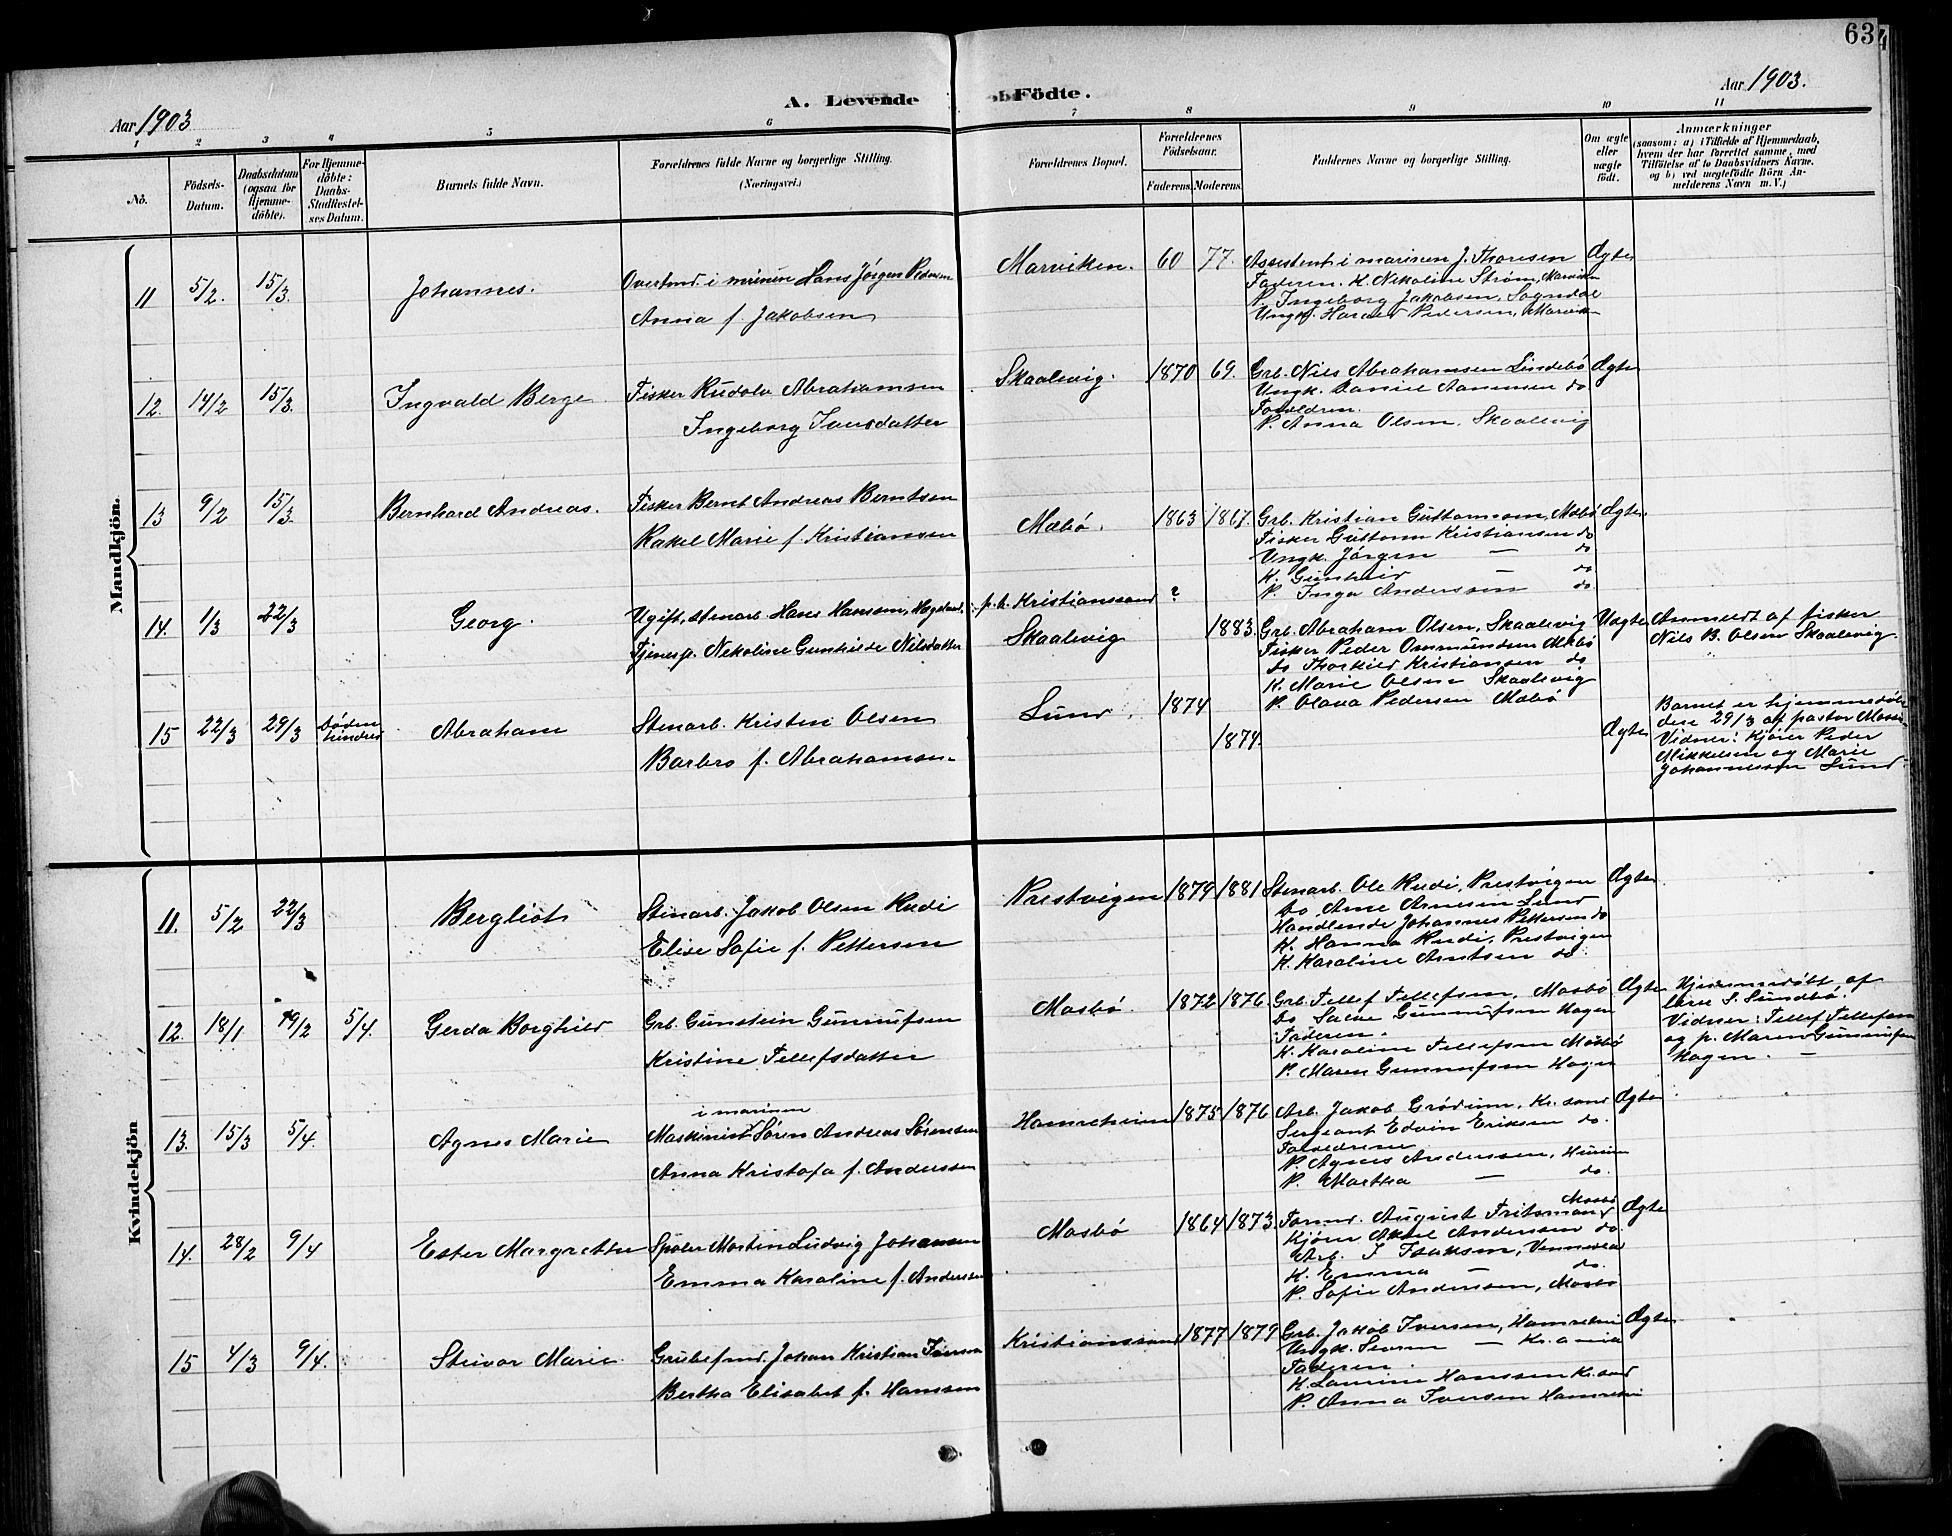 63
Aar 1903
A. Levende
Födte.
Aar 1903.
1 2 3 4 5 6 7 8 9 10 11
No.
Födsels-Datum.
Daabsdatum (ogsaa for Hjemmedöbte).
For Hjemmedöbte: Daabs-Stadfestelses Datum.
Barnets fulde Navn.
Forældrenes fulde Navne og borgerlige Stilling.
(Næringsvei.)
Forældrenes Bopæl.
Forældrenes Födselsaar.
Faderens. Moderens.
Faddernes Navne og borgerlige Stilling.
Om ægte eller uægte født.
Anmærkninger
(saasom: a) i Tilfælde af Hjemmedaab,
hvem der har forrettet samme, med
Tilföielse af to Daabsvidners Navne.
og b) ved uægtefödte Börn An-
melderens Navn m. V.)
Mandkjön.
11 5/2. 15/3. Johannes.
i minin Hans Jörgen Pedersen
Anna f. Jakobsen
Marviken. 60 77.
Assistent i marinen J. Thorsen
Faderen. K. Nikoline Ström, Marviken
P. Ingeborg Jakobsen, Sogndal
Ungk. Harald Pedersen, Marvik
Ægte
12. 14/2 15/3. Ingvald Berge
Fisker Rudolv Abrahamsen
Ingeborg Iversdatter
Skaalevig. 1870 69.
Grb. Nils Abrahamsen Lindebö
Ungk. Daniel Aanensen do
Forældren.
P. Anna Olsen, Skaalevig
Ægte
13 9/2 15/3. Bernhard Andreas.
Fisker Bernt Andreas Berntsen
Rakel Marie f. Kristiansen
Mæbö. 1863 1867.
Grb. Kristian Guttormsen, Mæbö
Fisker Guttorm Kristiansen do
Ungk. Jörgen — do
K. Gunhild — do
P. Inga Anderssen do.
Ægte.
14. 1/3 22/3 Georg.
Ugift, stenarb. Hans Hansen,
Tjenesp. Nikoline Gunhilde Nilsdatter
p.t. Kristianssand ?
Skaalevig 1883.
Grb. Abraham Olsen, Skaalevig
Fisker Peder Ommundsen Mæbö
do Thorkild Kristiansen do
K. Marie Olsen Skaalevig
P. Olava Pedersen Mæbö
Uægte
Anmeldt af fisker
Nils B. Olsen Skaalevig
15 22/3 29/3 Döden hindret Abraham
Stenarb. Kristen Olsen
Barbro f. Abrahamsen.
Lund. 1874
1874.
Ægte
Barnet er hjemmedöbt
29/3 af pastor
Vidner: Kjörer Peder
Mikkelsen og Marie
Johannessen Lund.
Kvindekjön
11. 5/2 22/3 Bergliot
Stenarb. Jakob Olsen Rudi
Elise Sofie f. Pettersen
Prestvigen 1879 1881
Stenarb. Ole Rudi, Prestvigen
Do Arne Arnesen Lund
Handlende Johannes Pettersen do
K. Hanna Rudi, Prestvigen
K. Karoline Arntsen do.
Ægte
12. 18/1 19/2 5/4. Gerda Borghild
Grb. Gunstein Gunnufsen
Kristine Tellefsdatter
Mosbö. 1872 1876.
Grb. Tellef Tellefsen, Mosbö
Do Salve Gunnufsen Hagen
Faderen.
K. Karoline Tellefsen Mosbö
P. Maren Gunnufsen Hagen
Ægte
Hjemmedöbt af
S. Sundbö.
Vidner: Tellef Tellefsen
og p. Maren Gunnufsen
Hagen. —
13. 15/3 5/4. Agnes Marie
i marinen
Maskinist Sören Andreas Sörensen
Anna Kristofa f. Anderssen
Hamreheien 1875 1876
Arb. Jakob Grödum, Kr. sand
Sergeant Edvin Eriksen do.
Forældrene
P. Agnes Anderssen,
P. Martha — do.
Ægte
14. 28/2 9/4 Ester Margrethe
Sporer Morten Ludvig Johansen
Emma Karoline f. Anderssen
Mosbö 1864 1873.
Mosbö
Formd. August Fritsman
Kjörer Aksel Andersen do.
Arb. J Isaksen, Vennesla
K. Emma — do.
P. Sofie Andersen, Mosbö
Ægte
15 4/3 9/4. Steivor Marie
Grubeformd. Johan Kristian Iversen
Bertha Elisabet f. Hanssen
Kristianssand 1877 1879
Grb. Jakob Iversen, Hamreheien
Ungk. Severin — Kr. ania
Faderen.
K. Lamine Hanssen Kr. sand
P. Anna Iversen Hamreheien
Ægte